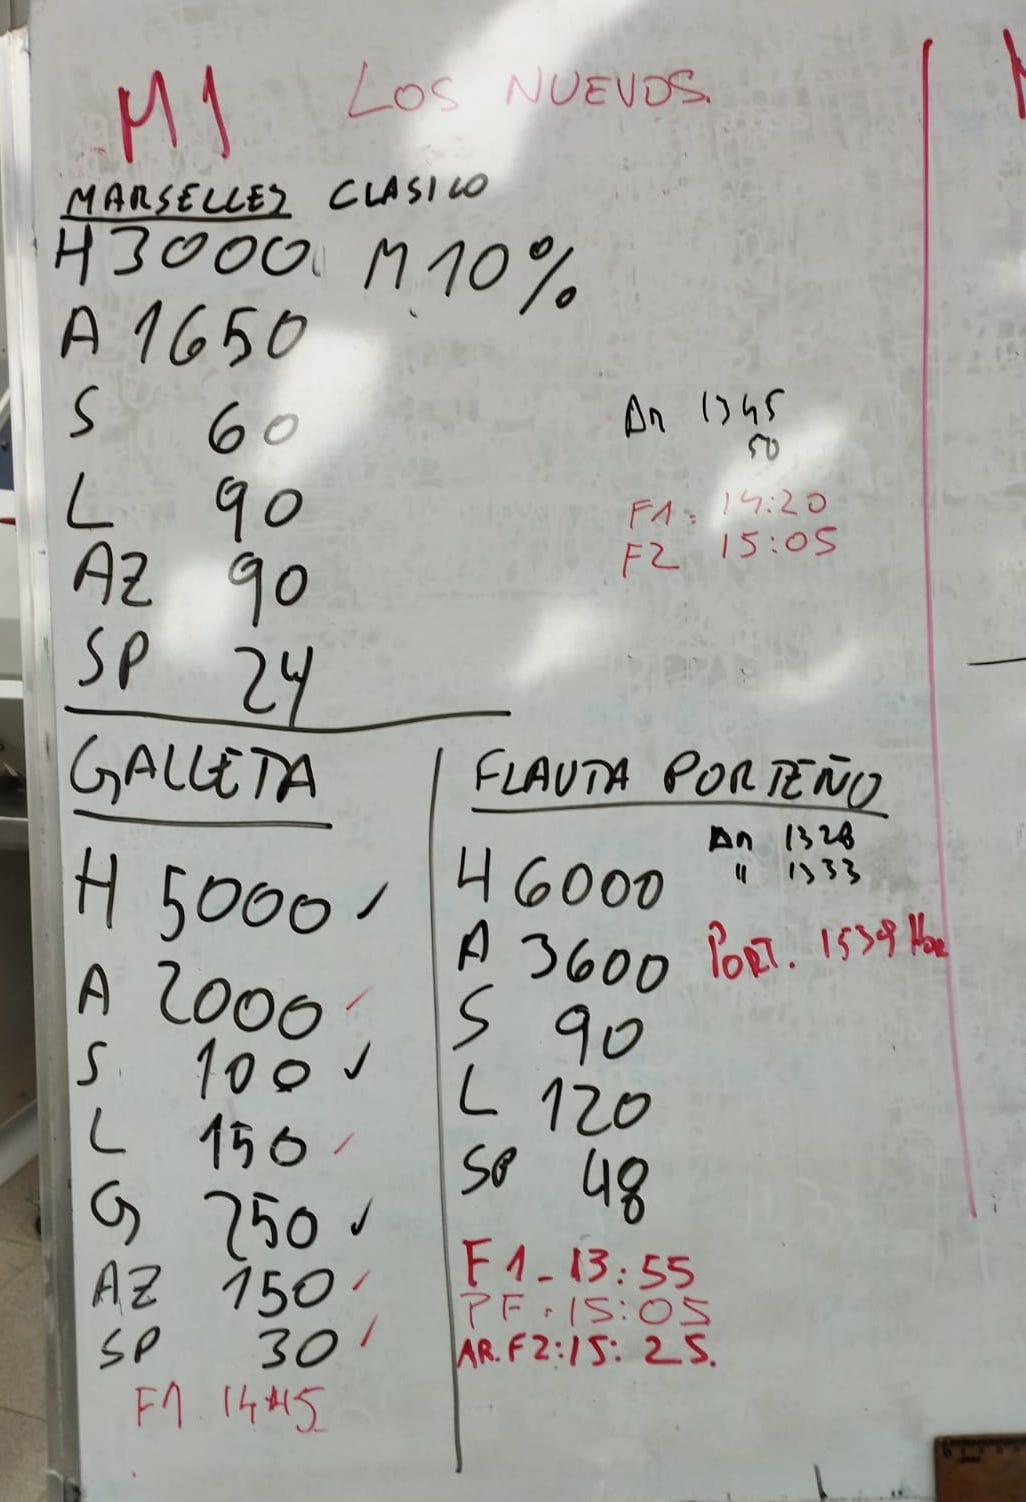 M1 LOS NUEVOS.
MARSELLES CLASICO
H 3000 M 10%
A 1650
S 60
L 90
AZ 90
SP 24
An 1345
50
F1: 14:20
F2 15:05
GALLETA
H 5000 ✓
A 2000 ✓
S 100 ✓
L 150 ✓
G 250 ✓
AZ 150 ✓
SP 30 ✓
F1 14:45
FLAUTA PORTEÑO
An 1328
" 1333
H 6000
A 3600
PORT. 1539 Hor
S 90
L 120
SP 48
F1 - 13:55
PF. 15:05
AR. F2: 15: 25.